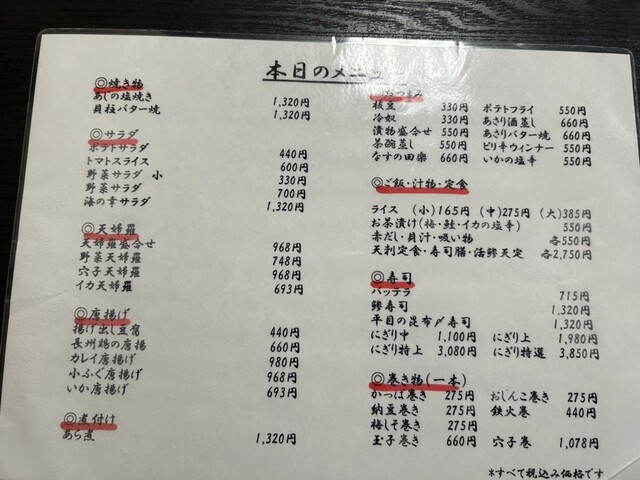 本日のメニュー
◎焼き物
あしの塩焼き 1,320円
貝柱バター焼 1,320円
◎サラダ
ポテトサラダ 440円
トマトスライス 600円
野菜サラダ 小 330円
野菜サラダ 700円
海の幸サラダ 1,320円
◎天婦羅
天婦羅盛合せ 968円
野菜天婦羅 748円
穴子天婦羅 968円
イカ天婦羅 693円
◎唐揚げ
揚げ出し豆腐 440円
長州鶏の唐揚 660円
カレイ唐揚げ 980円
小ふぐ唐揚げ 968円
いか唐揚げ 693円
◎煮付け
あら煮 1,320円
◎おつまみ
枝豆 330円 ポテトフライ 550円
冷奴 330円 あさり酒蒸し 660円
漬物盛合せ 550円 あさりバター焼 660円
茶碗蒸し 550円 ピリ辛ウィンナー 550円
なすの田楽 660円 いかの塩辛 550円
◎ご飯・汁物・定食
ライス (小)165円 (中)275円 (大)385円
お茶漬け(梅・鮭・イカの塩辛) 550円
赤だし・貝汁・吸い物 各550円
天刺定食・寿司膳・活鯵天定 各2,750円
◎寿司
バッテラ 715円
鯵寿司 1,320円
平目の昆布〆寿司 1,320円
にぎり中 1,100円 にぎり上 1,980円
にぎり特上 3,080円 にぎり特選 3,850円
◎巻き物(一本)
かっぱ巻き 275円 おしんこ巻き 275円
納豆巻き 275円 鉄火巻 440円
梅しそ巻き 275円
玉子巻き 660円 穴子巻 1,078円
*すべて税込み価格です